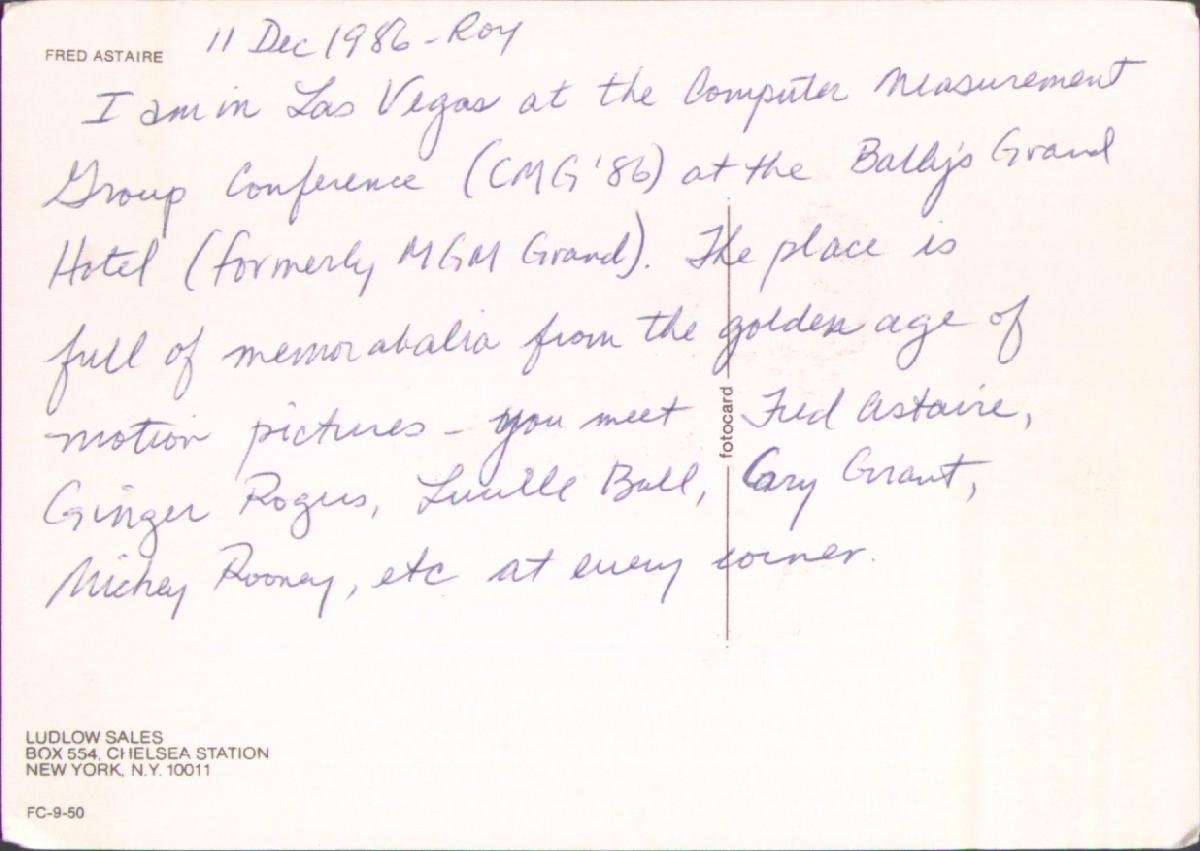 FRED ASTAIRE
11 Dec 1986 - Roy
I am in Las Vegas at the Computer Measurement
Group Conference (CMG '86) at the Bally's Grand
Hotel (formerly MGM Grand). The place is
full of memorabalia from the golden age of
motion pictures - you meet Fred Astaire,
Ginger Rogers, Lucille Ball, Cary Grant,
Mickey Rooney, etc at every corner.
fotocard
LUDLOW SALES
BOX 554, CHELSEA STATION
NEW YORK, N.Y. 10011
FC-9-50